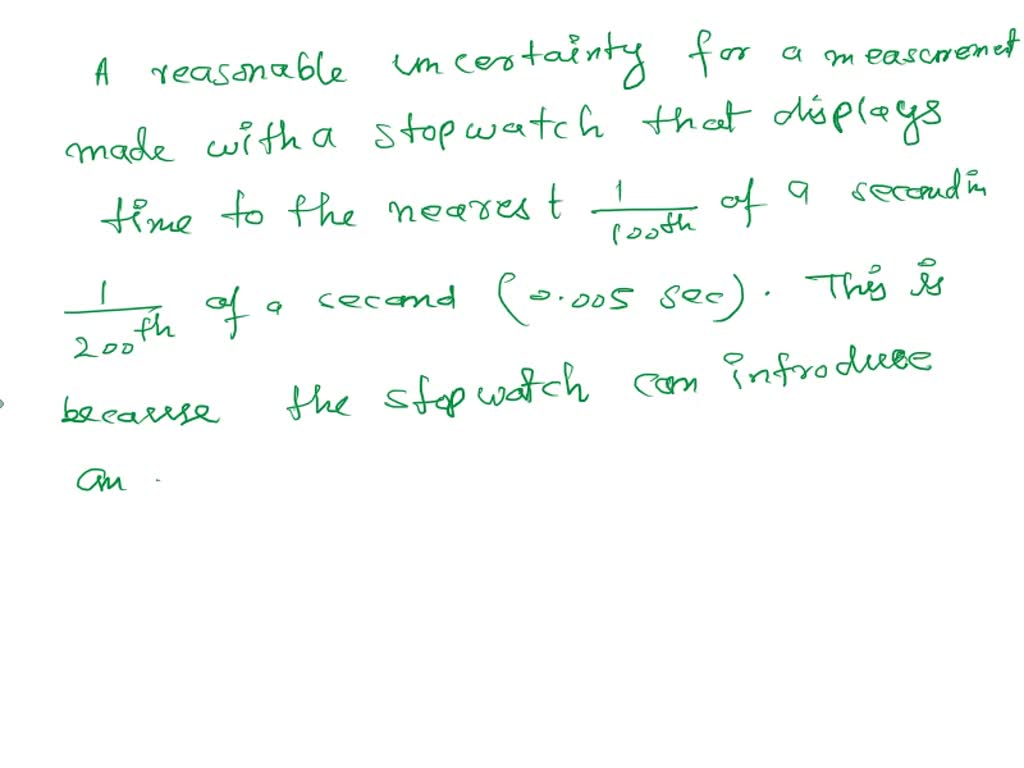 A reasonable uncertainty for a measurement
made with a stopwatch that displays
time to the nearest 1/100th of a second in
1/200th of a second (0.005 sec). This is
because the stopwatch can introduce
an .